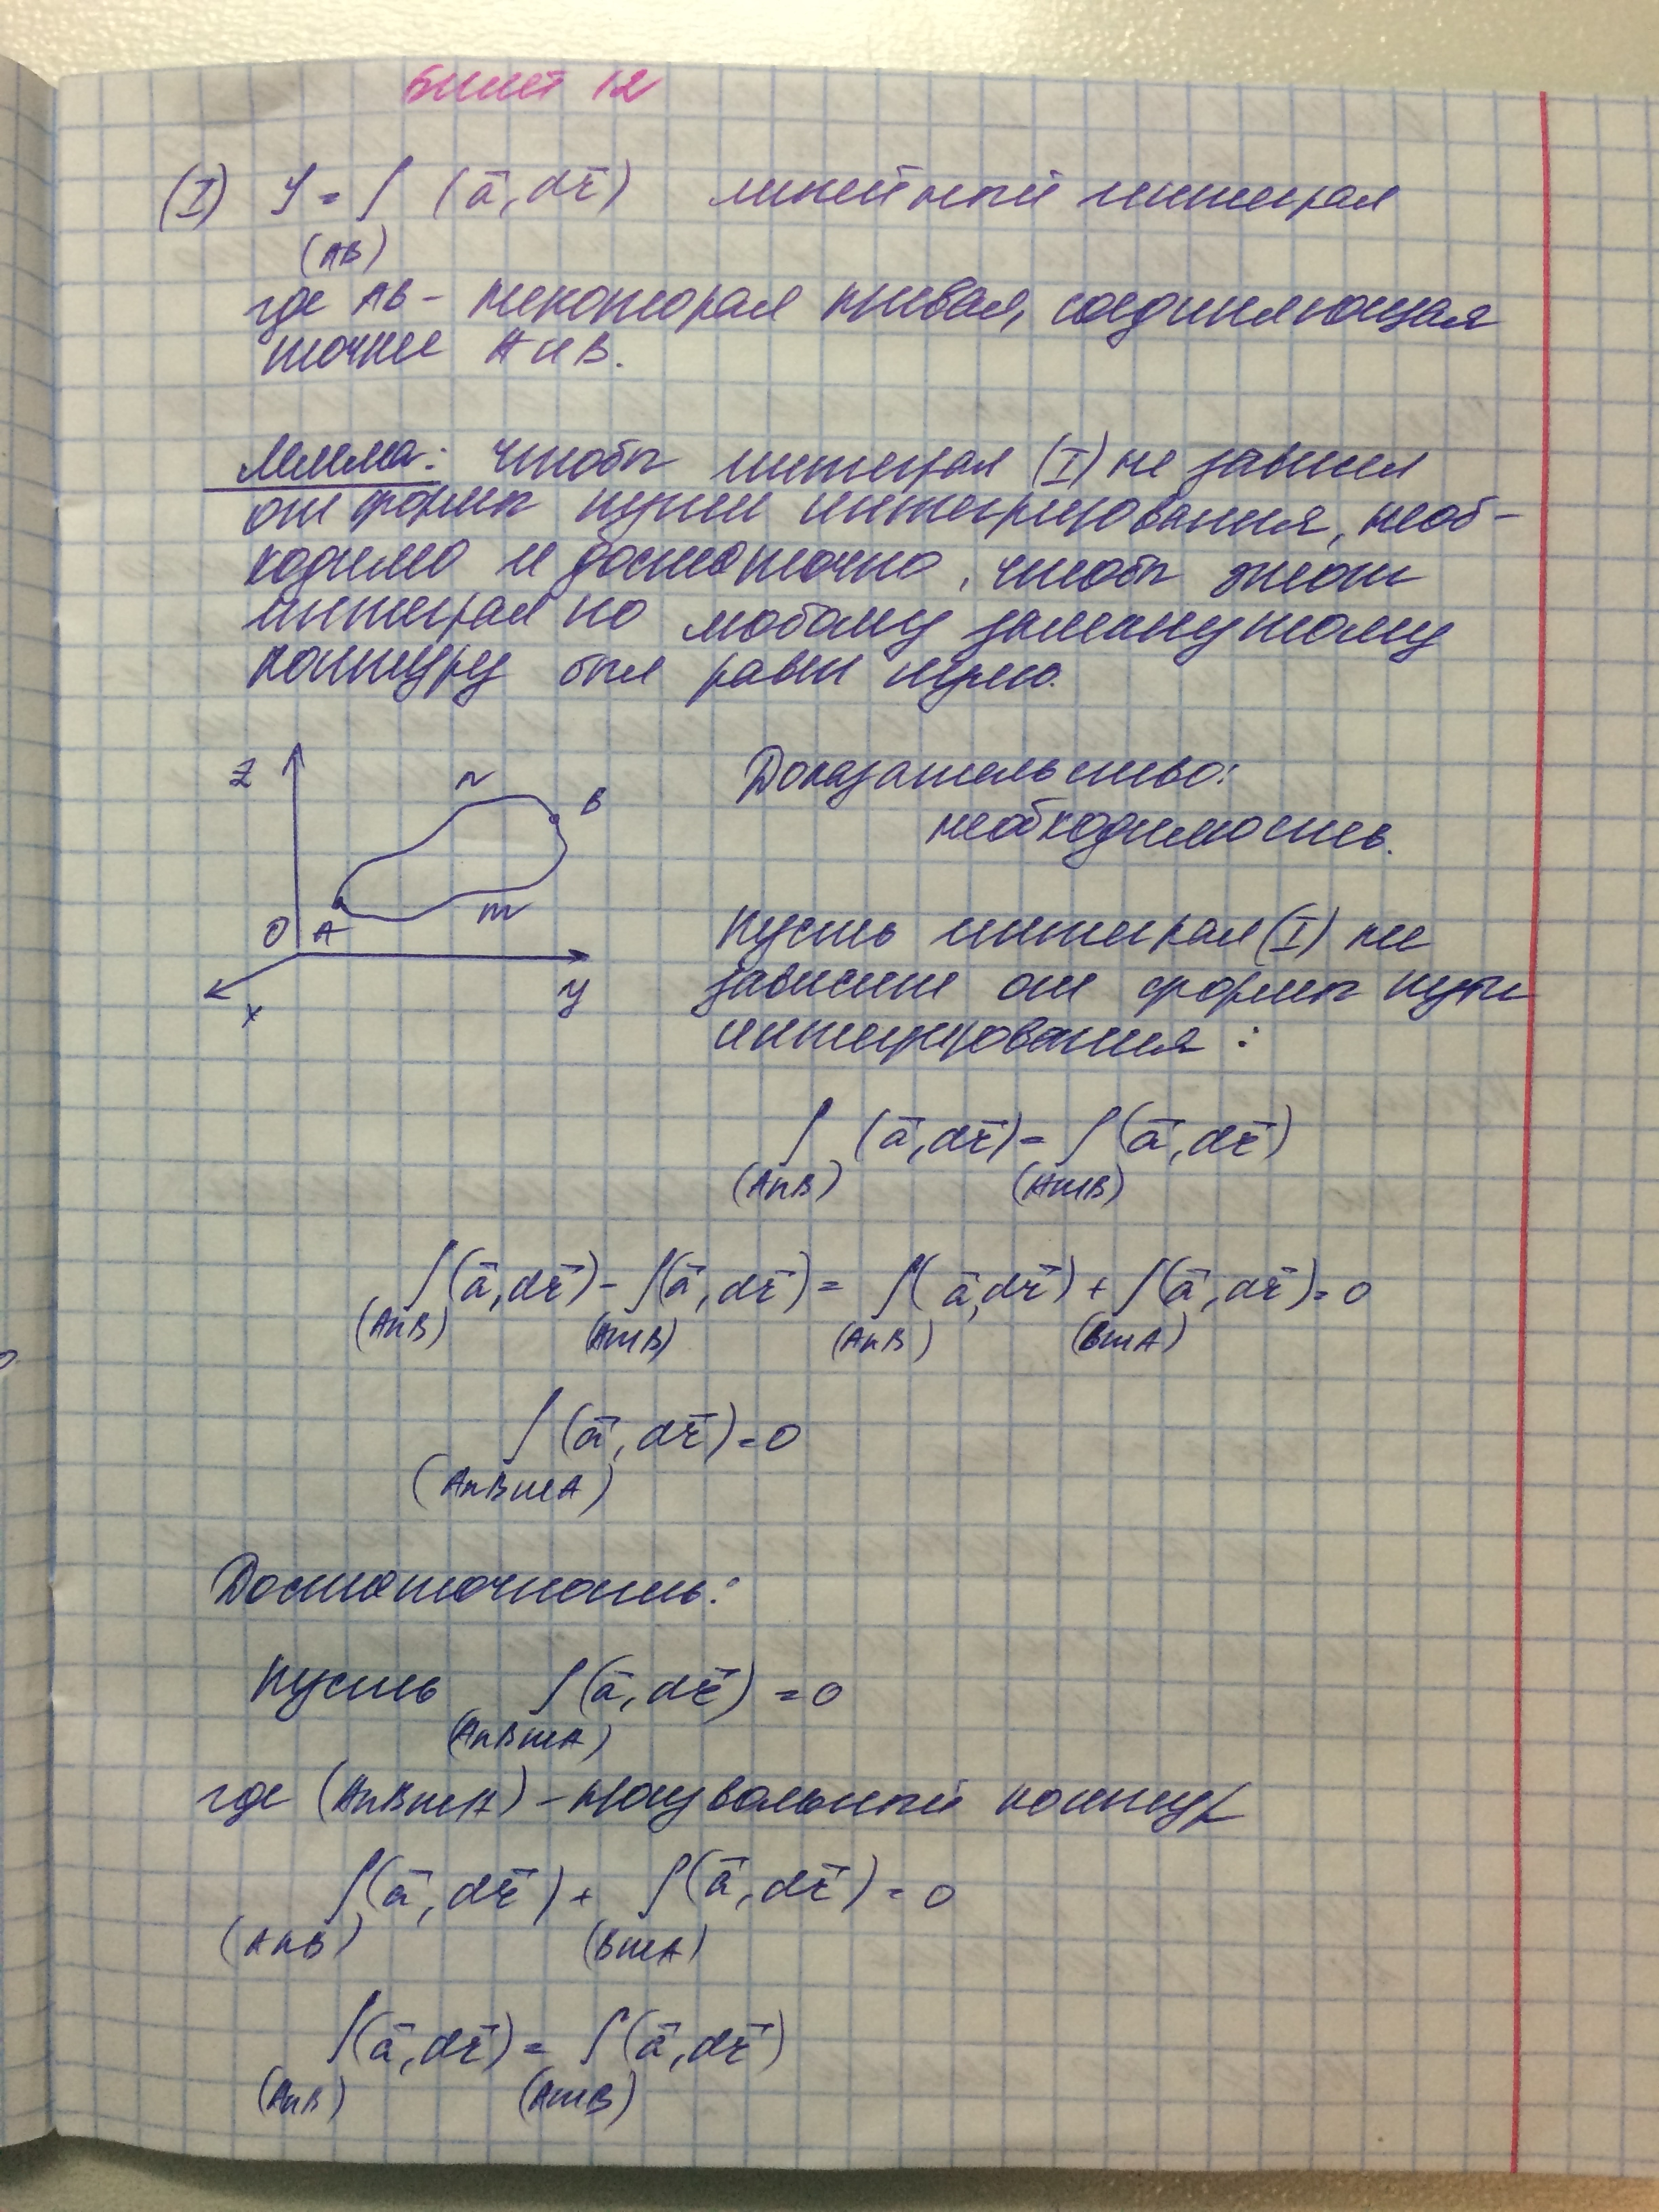 Билет 12
(I) J = ∫ (ā, dr̄) линейный интеграл
(AB)
где AB - некоторая кривая, соединяющая
точки A и B.
Лемма: чтобы интеграл (I) не зависел
от формы пути интегрирования, необ-
ходимо и достаточно, чтобы этот
интеграл по любому замкнутому
контуру был равен нулю.
z n B
O A m
x y
Доказательство:
необходимость.
Пусть интеграл (I) не
зависит от формы пути
интегрирования:
∫ (ā, dr̄) = ∫ (ā, dr̄)
(AnB) (AmB)
∫ (ā, dr̄) - ∫ (ā, dr̄) = ∫ (ā, dr̄) + ∫ (ā, dr̄) = 0
(AnB) (AmB) (AnB) (BmA)
∫ (ā, dr̄) = 0
(AnBmA)
Достаточность:
Пусть ∫ (ā, dr̄) = 0
(AnBmA)
где (AnBmA) - произвольный контур
∫ (ā, dr̄) + ∫ (ā, dr̄) = 0
(AnB) (BmA)
∫ (ā, dr̄) = ∫ (ā, dr̄)
(AnB) (AmB)